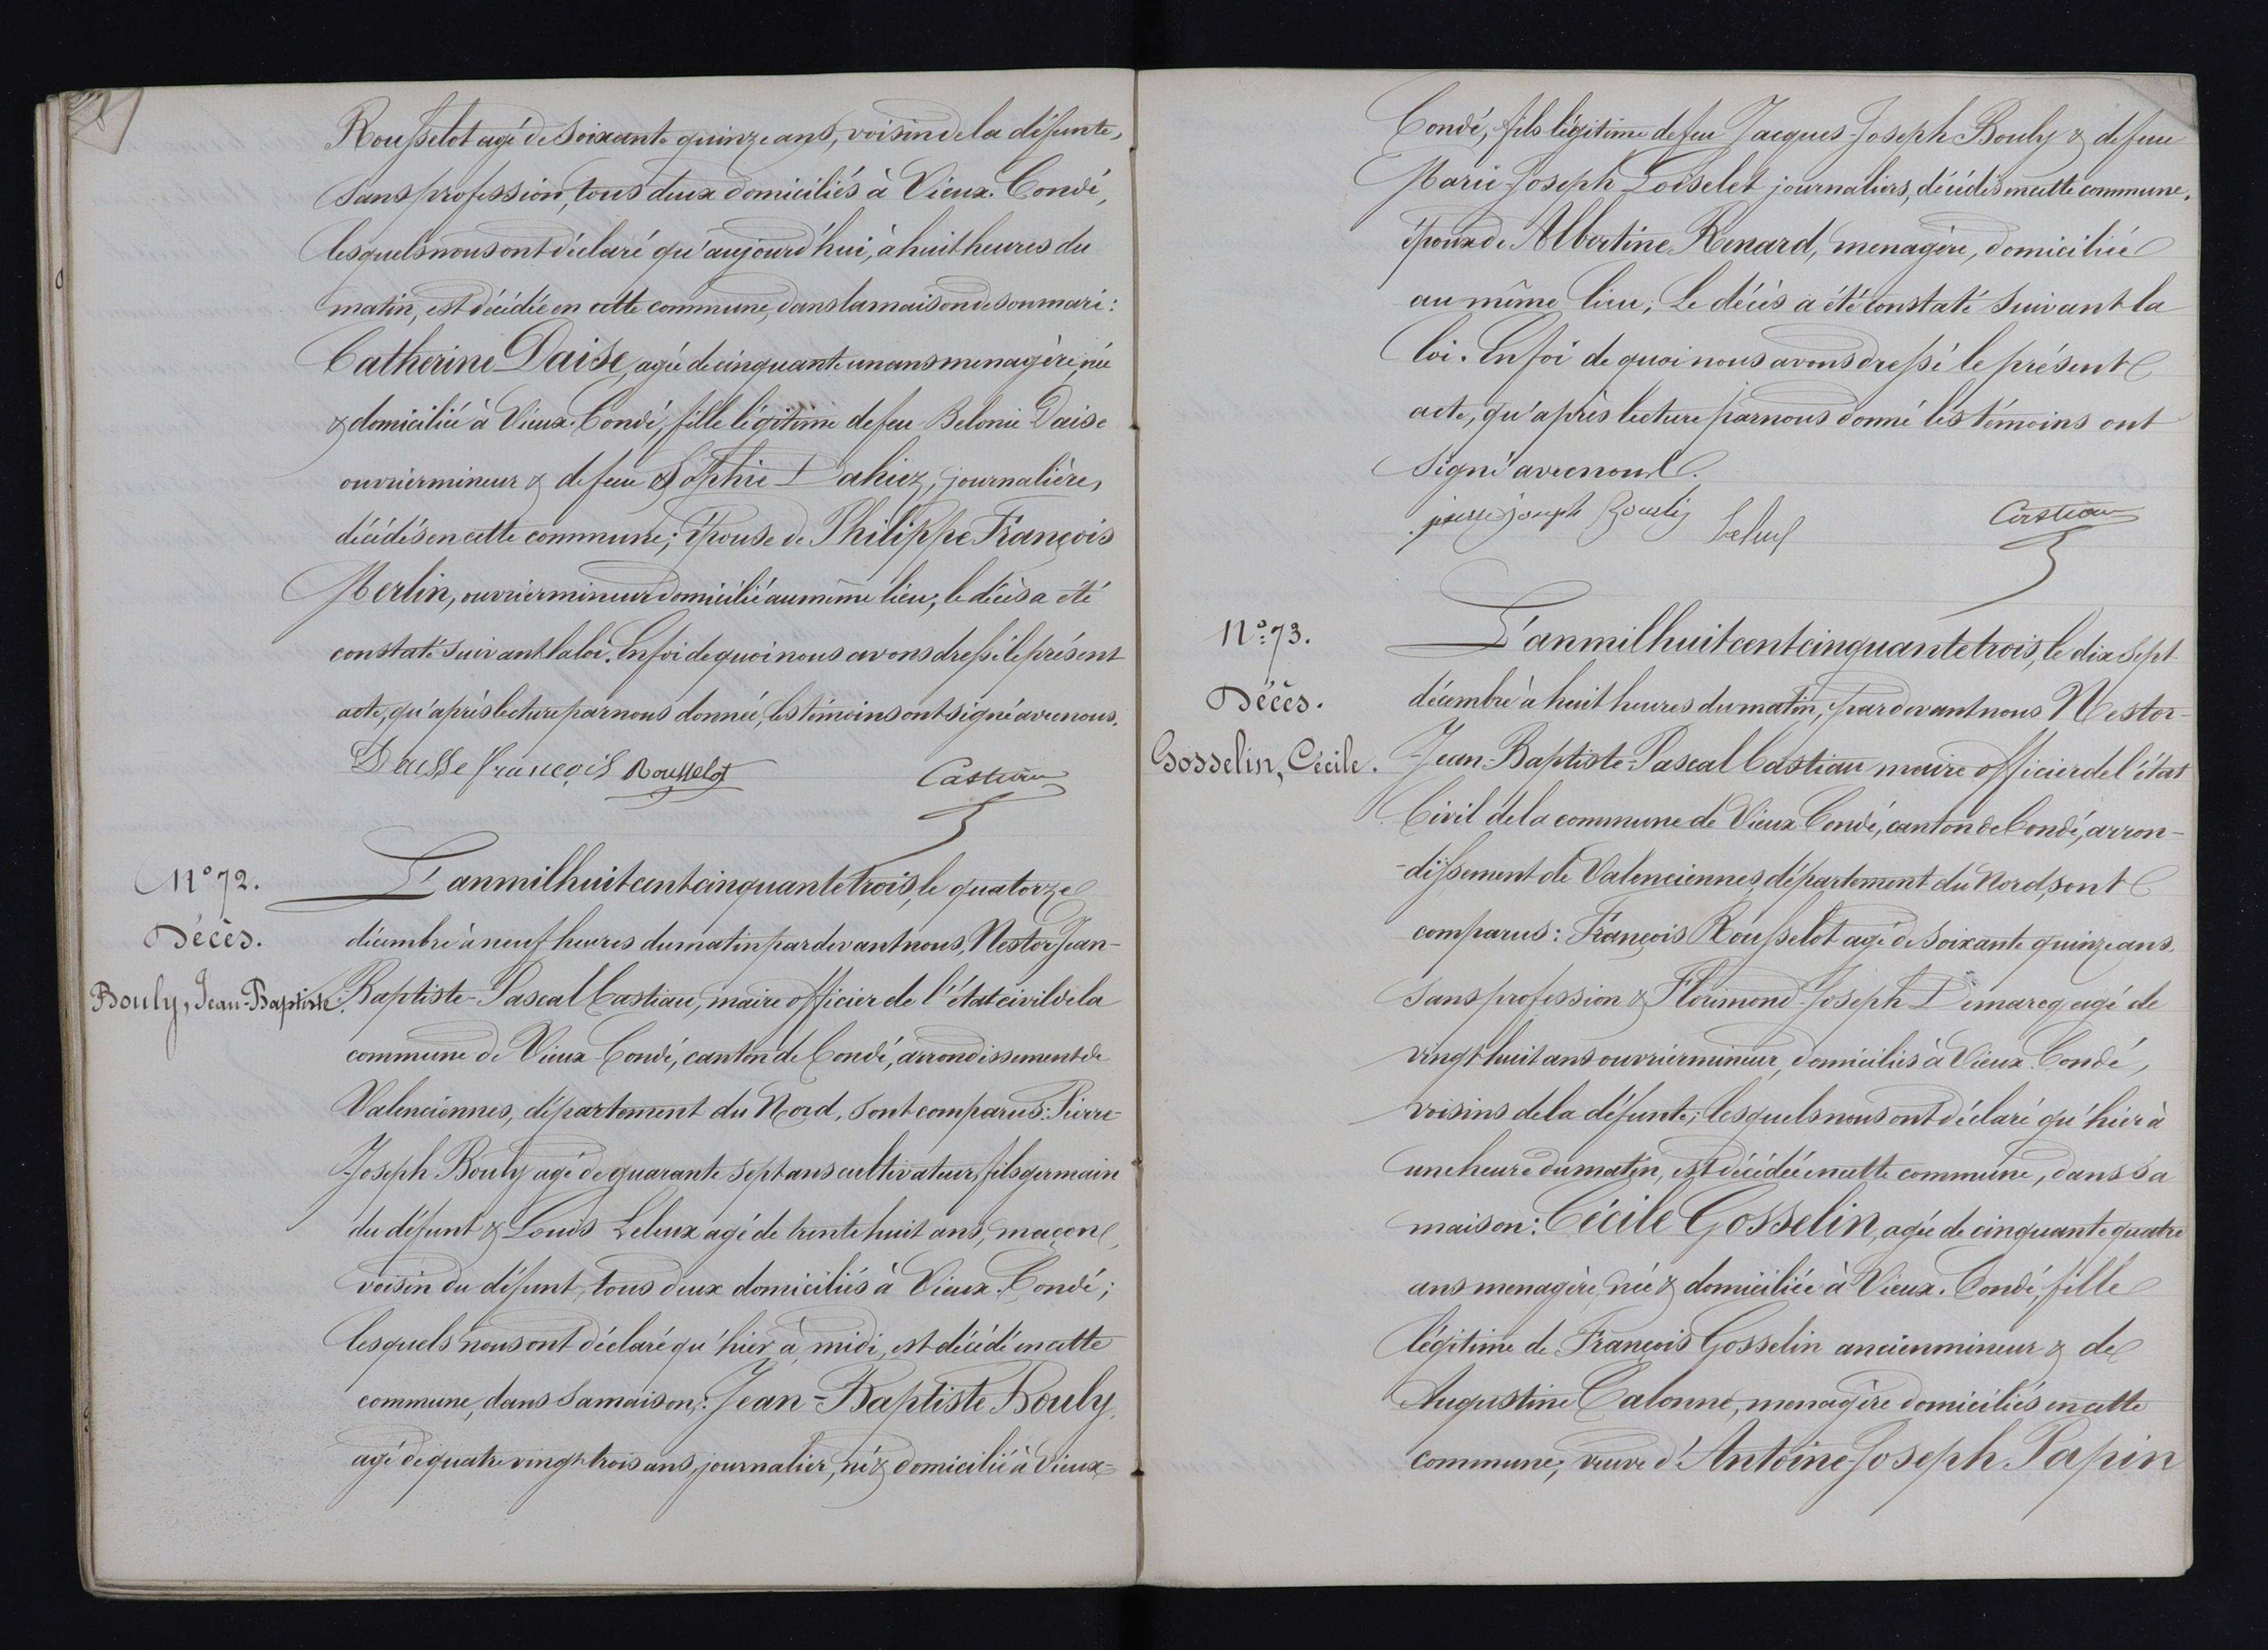 Rousselot agé de soixante quinze ans, voisin de la défunte,
sans profession, tous deux domiciliés à Vieux-Condé,
lesquels nous ont déclaré qu'aujourd'hui, à huit heures du
matin, est décédée en cette commune, dans la maison de son mari:
Catherine Daise, agée de cinquante un ans menagère, née
& domiciliée à Vieux-Condé, fille légitime de feu Belonie Daise
ouvrier mineur & de feue Sophie Dahiez, journalière,
décédés en cette commune; épouse de Philippe François
Merlin, ouvrier mineur domicilié au même lieu; le décès a été
constaté suivant la loi. En foi de quoi nous avons dressé le présent
acte, qu'après lecture par nous donnée, les témoins ont signé avec nous.
Dausse françois Rousselot Castiau
N° 72.
Décès.
Bouly, Jean-Baptiste.
L'an mil huit cent cinquante trois, le quatorze
décembre à neuf heures du matin par devant nous, Nestor Jean-
Baptiste-Pascal Castiau, maire officier de l'état civil de la
commune de Vieux-Condé, canton de Condé, arrondissement de
Valenciennes, département du Nord, sont comparus: Pierre-
Joseph Bouly agé de quarante sept ans cultivateur, fils germain
du défunt & Louis Leleux agé de trente huit ans, maçon,
voisin du défunt, tous deux domiciliés à Vieux-Condé;
lesquels nous ont déclaré qu'hier à midi, est décédé en cette
commune, dans sa maison: Jean-Baptiste Bouly,
agé de quatre vingt trois ans, journalier, né & domicilié à Vieux-
Condé, fils légitime de feu Jacques-Joseph Bouly & de feue
Marie-Joseph Loiselet journaliers, décédés en cette commune.
époux de Albertine Renard, menagère, domiciliée
au même lieu; Le décès a été constaté suivant la
loi. En foi de quoi nous avons dressé le présent
acte, qu'après lecture par nous donné les témoins ont
signé avec nous.
pierre joseph Bouly Leleux Castiau
N°: 73.
Décès.
Gosselin, Cécile.
L'an mil huit cent cinquante trois, le dix sept
décembre à huit heures du matin, par devant nous Nestor-
Jean-Baptiste-Pascal Castiau maire officier de l'état
Civil de la commune de Vieux-Condé, canton de Condé, arron-
-dissement de Valenciennes, département du Nord, sont
comparus: François Rousselot agé de soixante quinze ans,
sans profession & Florimond-Joseph Demarcq agé de
vingt huit ans ouvrier mineur, domiciliés à Vieux-Condé,
voisins de la défunte; lesquels nous ont déclaré qu'hier à
une heure du matin, est décédée en cette commune, dans sa
maison: Cécile Gosselin, agée de cinquante quatre
ans menagère, née & domiciliée à Vieux-Condé, fille
légitime de François Gosselin ancien mineur & de
Augustine Calonne, menagère domiciliés en cette
commune; veuve d'Antoine-Joseph Papin